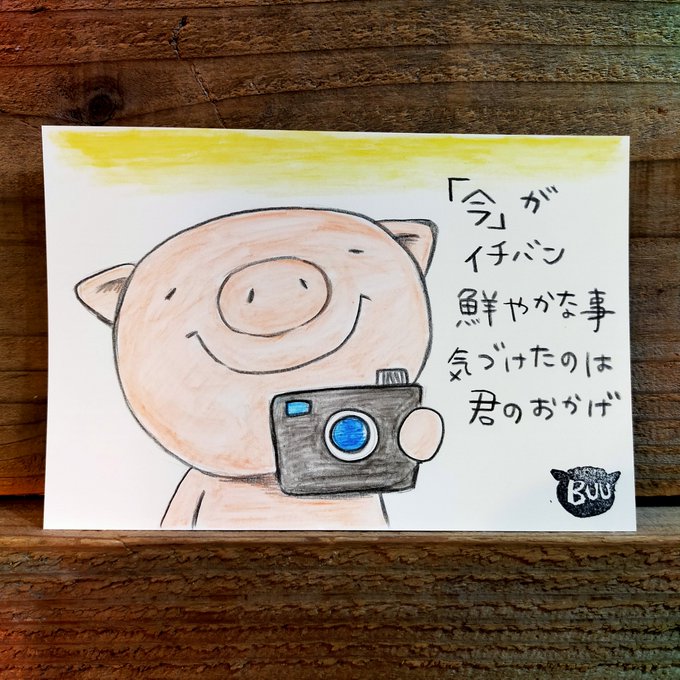 「今」が
イチバン
鮮やかな事
気づけたのは
君のおかげ
BUU